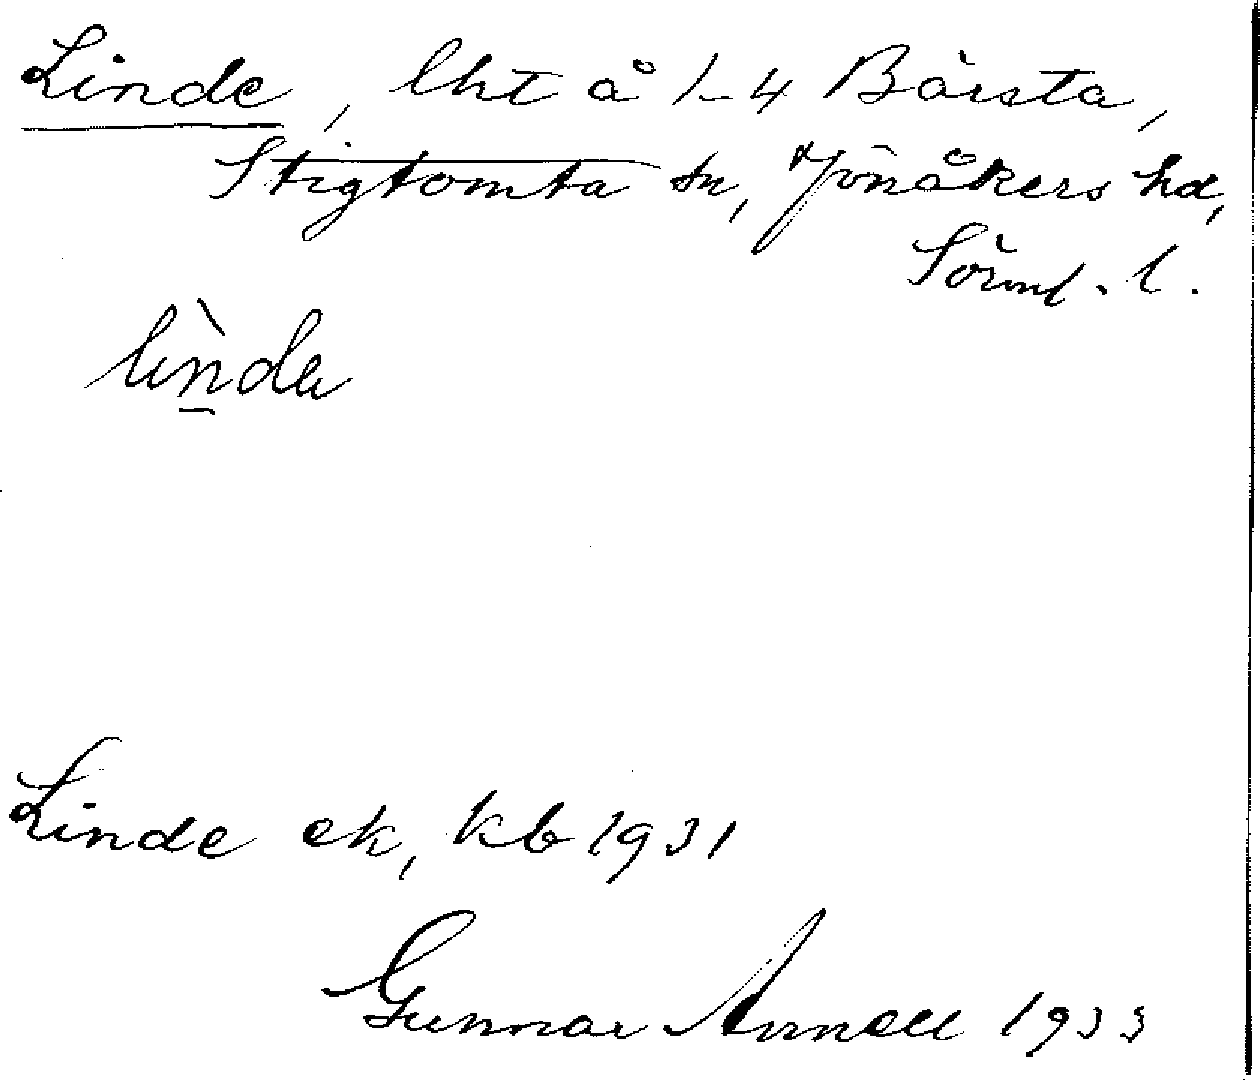 Linde, lht å 1-4 Bärsta,
Stigtomta sn, Jönåkers hd,
Sörml. l.
lìnda
Linde ek, kb 1931
Gunnar Arnell 1933